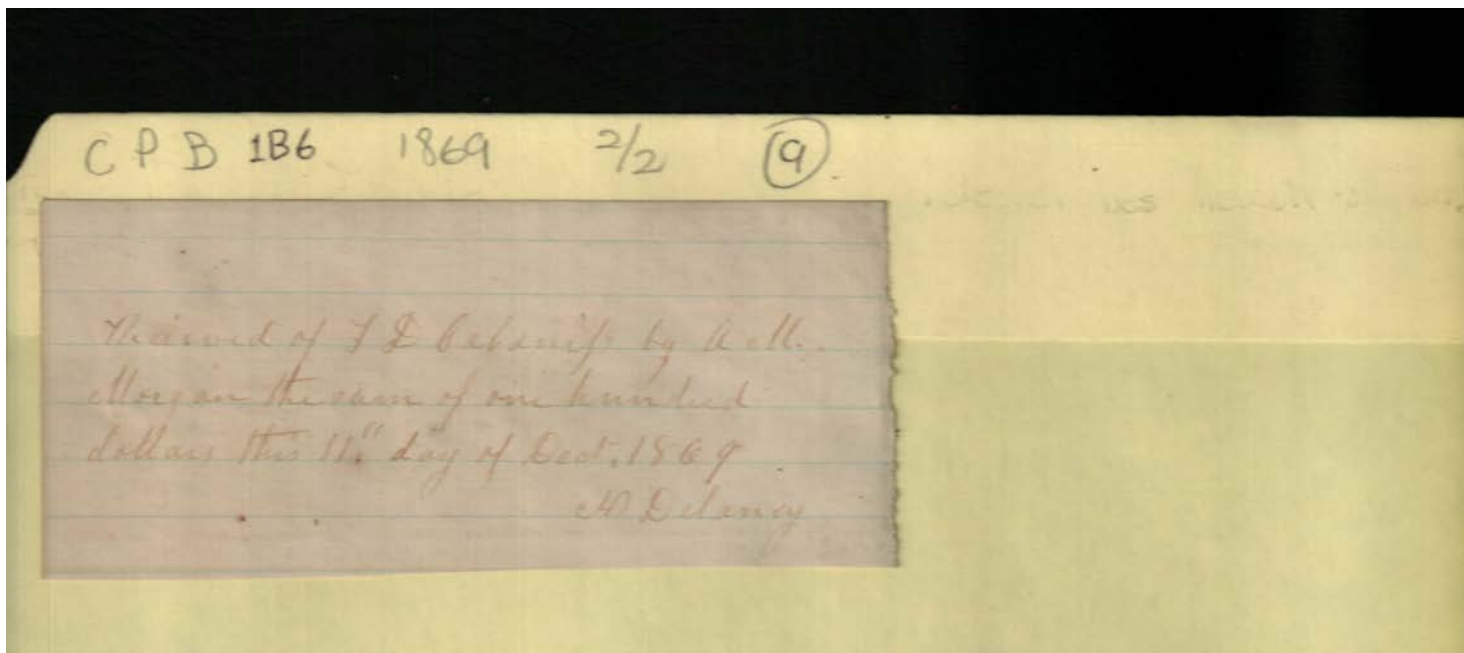 C P B 1B6 1869 2/2 9
Received of by A. M.
Morgan the sum of one hundred
dollars this 11" day of Dect. 1869
Delaney